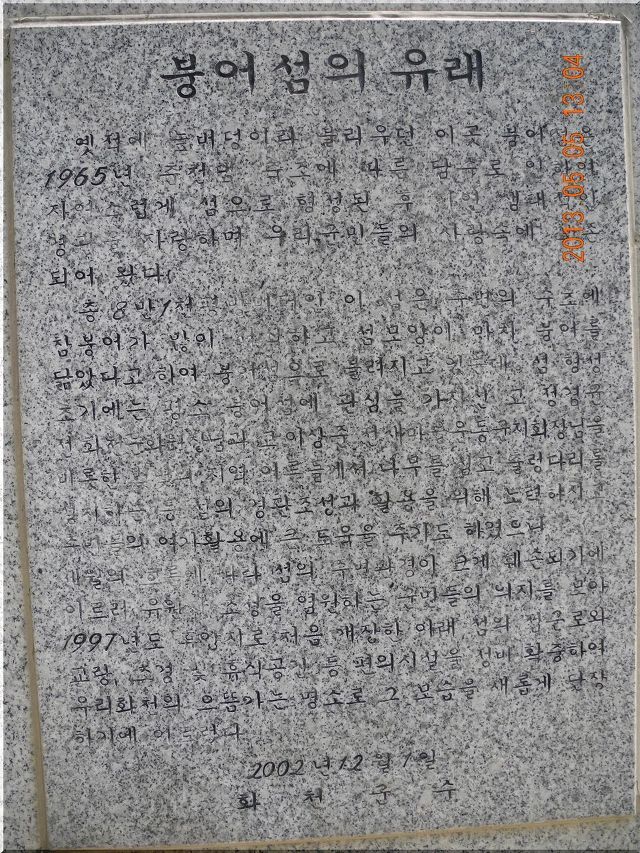 붕어섬의 유래
옛적에 늪배덩이라 불리우던 이곳 붕어섬은
1965년 춘천댐 담수로 인하여
자연스럽게 섬으로 형성된 후
자랑하며 우리 군민들의 사랑속에
되어 왔다.
총 8만1천평 이 섬은 주변의 수초에
참붕어가 많이 섬모양이 마치 붕어를
닮았다고 하여 붕어섬으로 불려지고 있는데 섬 형성
초기에는 평소 붕어섬에 관심을 가지신 고 정경균
전 고 이상준 전 새마을운동
비롯하 지역 어른들께서 나무를 심고 출렁다리를
설치하는 등 섬의 경관조성과 활용을 위해 노력하시고
주민들의 여가활용에 큰 도움을 주기도 하였으나
섬의 주변환경이 크게 훼손되기에
이르러 조성을 염원하는 군민들의 의지를 모아
1997년도 처음 개장한 이래 섬의 진입로와
교량, 조경 및 휴식공간 등 편의시설을 정비 확충하여
우리화천의 으뜸가는 명소로 그 모습을 새롭게 단장
하기에 이르렀다
2002년12월1일
화천군수
2013.05.05 13:04